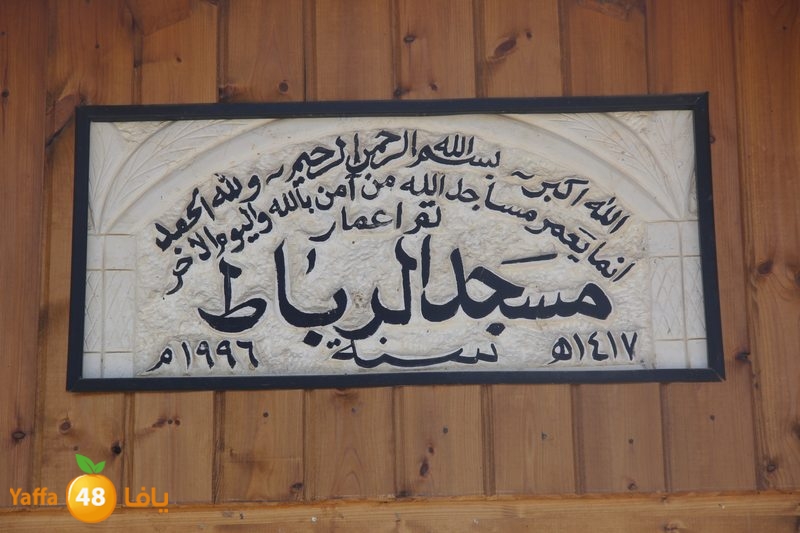 الله اكبر بسم الله الرحمن الرحيم ولله الحمد
انما يعمر مساجد الله من آمن بالله واليوم الآخر
تم اعمار
مسجد الرباط
١٤١٧هـ سنة ١٩٩٦م
Yaffa 48 يافا